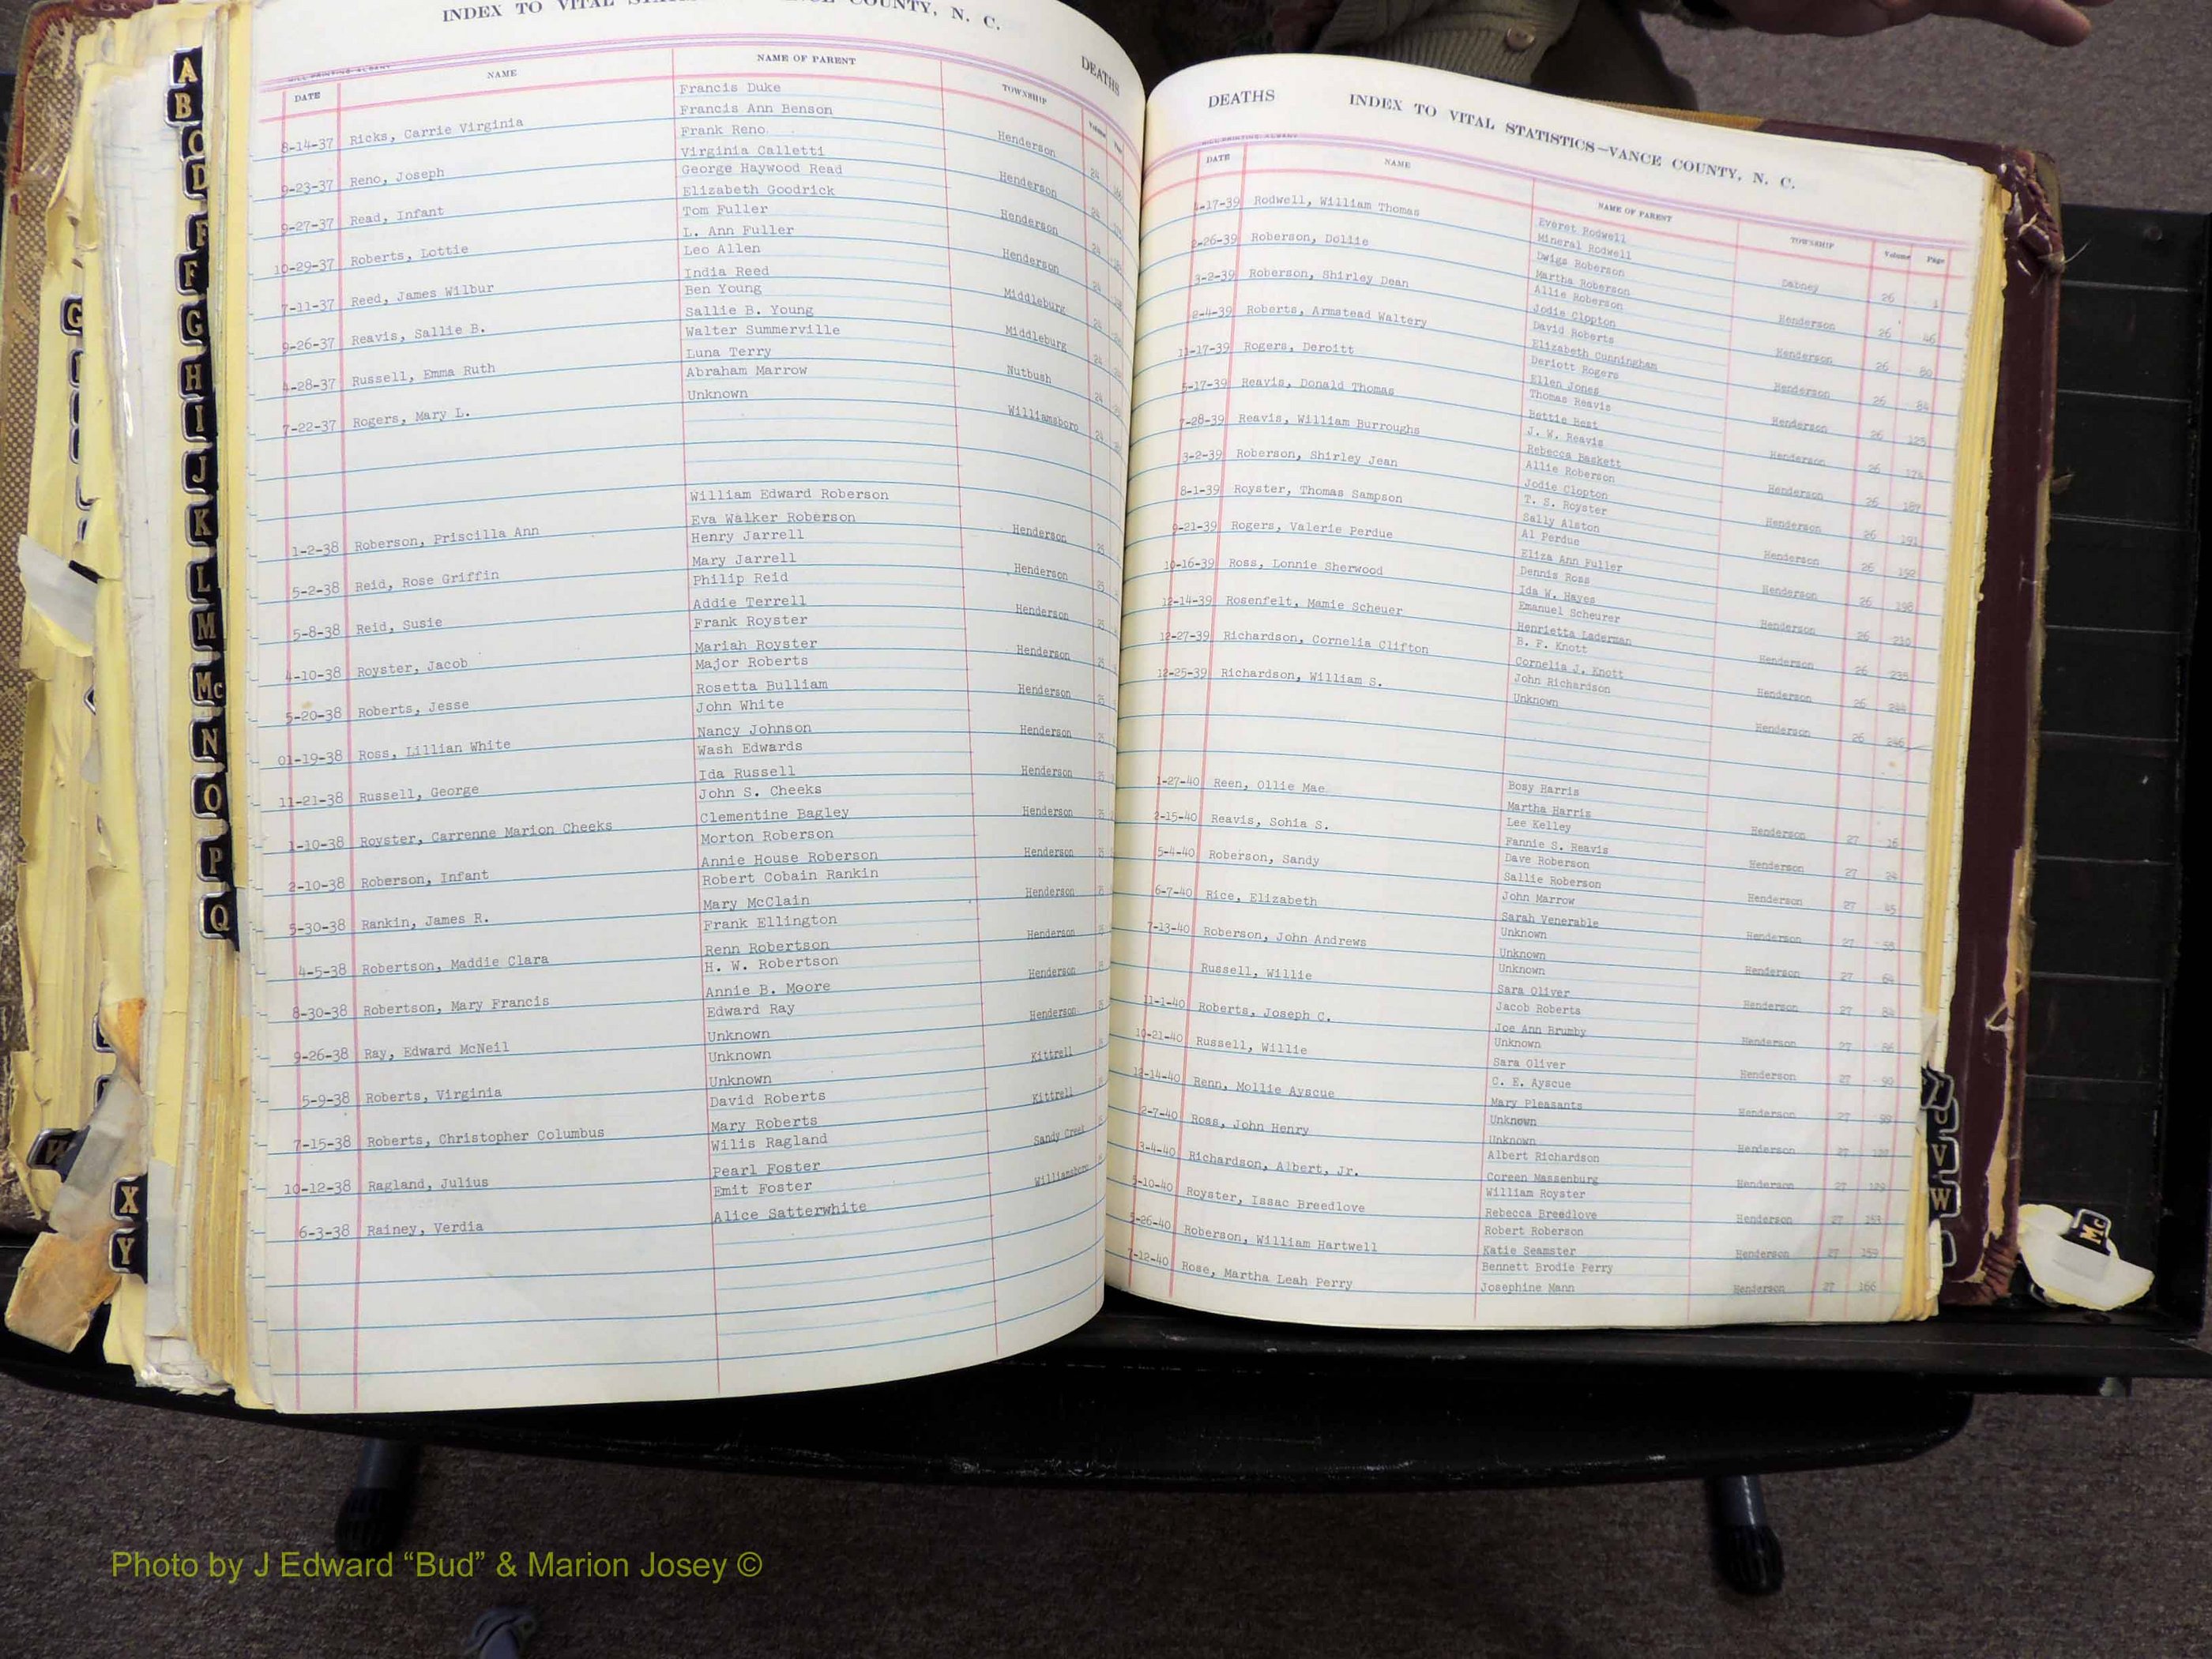 INDEX TO VITAL COUNTY, N. C.
DEATHS
DATE NAME NAME OF PARENT TOWNSHIP Volume
Francis Duke
8-14-37 Ricks, Carrie Virginia Francis Ann Benson Henderson 24
Frank Reno
9-23-37 Reno, Joseph Virginia Calletti Henderson 24
George Haywood Read
9-27-37 Read, Infant Elizabeth Goodrick Henderson 24
Tom Fuller
10-29-37 Roberts, Lottie L. Ann Fuller Henderson 24
Leo Allen
7-11-37 Reed, James Wilbur India Reed Middleburg 24
Ben Young
9-26-37 Reavis, Sallie B. Sallie B. Young Middleburg 24
Walter Summerville
4-28-37 Russell, Emma Ruth Luna Terry Nutbush 24
Abraham Marrow
7-22-37 Rogers, Mary L. Unknown Williamsboro 24
William Edward Roberson
1-2-38 Roberson, Priscilla Ann Eva Walker Roberson Henderson 25
Henry Jarrell
5-2-38 Reid, Rose Griffin Mary Jarrell Henderson 25
Philip Reid
5-8-38 Reid, Susie Addie Terrell Henderson 25
Frank Royster
4-10-38 Royster, Jacob Mariah Royster Henderson 25
Major Roberts
5-20-38 Roberts, Jesse Rosetta Bulliam Henderson 25
John White
01-19-38 Ross, Lillian White Nancy Johnson Henderson 25
Wash Edwards
11-21-38 Russell, George Ida Russell Henderson 25
John S. Cheeks
1-10-38 Royster, Carrenne Marion Cheeks Clementine Bagley Henderson 25
Morton Roberson
2-10-38 Roberson, Infant Annie House Roberson Henderson
Robert Cobain Rankin
5-30-38 Rankin, James R. Mary McClain Henderson
Frank Ellington
4-5-38 Robertson, Maddie Clara Renn Robertson Henderson
H. W. Robertson
8-30-38 Robertson, Mary Francis Annie B. Moore Henderson
Edward Ray
9-26-38 Ray, Edward McNeil Unknown Henderson
Unknown
5-9-38 Roberts, Virginia Unknown Kittrell
David Roberts
7-15-38 Roberts, Christopher Columbus Mary Roberts Kittrell
Wilis Ragland
10-12-38 Ragland, Julius Pearl Foster Sandy Creek
Emit Foster
6-3-38 Rainey, Verdia Alice Satterwhite Williamsboro
DEATHS INDEX TO VITAL STATISTICS—VANCE COUNTY, N. C.
DATE NAME NAME OF PARENT TOWNSHIP Volume Page
Everet Rodwell
-17-39 Rodwell, William Thomas Mineral Rodwell Dabney 26 1
Dwigs Roberson
-26-39 Roberson, Dollie Martha Roberson Henderson 26 46
Allie Roberson
3-2-39 Roberson, Shirley Dean Jodie Clopton Henderson 26 80
David Roberts
8-4-39 Roberts, Armstead Waltery Elizabeth Cunningham Henderson 26 84
Deriott Rogers
11-17-39 Rogers, Deroitt Ellen Jones Henderson 26 125
Thomas Reavis
5-17-39 Reavis, Donald Thomas Bettie Best Henderson 26
J. W. Reavis
7-28-39 Reavis, William Burroughs Rebecca Baskett Henderson 26 187
Allie Roberson
3-2-39 Roberson, Shirley Jean Jodie Clopton Henderson 26 191
T. S. Royster
8-1-39 Royster, Thomas Sampson Sally Alston Henderson 26 192
Al Perdue
9-21-39 Rogers, Valerie Perdue Eliza Ann Fuller Henderson 26 198
Dennis Ross
10-16-39 Ross, Lonnie Sherwood Ida W. Hayes Henderson 26 210
Emanuel Scheurer
12-14-39 Rosenfelt, Mamie Scheuer Henrietta Laderman Henderson 26 235
B. F. Knott
12-27-39 Richardson, Cornelia Clifton Cornelia J. Knott Henderson 26 244
John Richardson
12-25-39 Richardson, William S. Unknown Henderson 26 246
Bosy Harris
1-27-40 Reen, Ollie Mae Martha Harris Henderson 27 16
Lee Kelley
2-15-40 Reavis, Sohia S. Fannie S. Reavis Henderson 27 24
Dave Roberson
5-4-40 Roberson, Sandy Sallie Roberson Henderson 27 45
John Marrow
6-7-40 Rice, Elizabeth Sarah Venerable Henderson 27 55
Unknown
7-13-40 Roberson, John Andrews Unknown Henderson 27 64
Unknown
Russell, Willie Sara Oliver Henderson 27 84
Jacob Roberts
11-1-40 Roberts, Joseph C. Joe Ann Brumby Henderson 27 86
Unknown
10-21-40 Russell, Willie Sara Oliver Henderson 27 90
C. E. Ayscue
12-14-40 Renn, Mollie Ayscue Mary Pleasants Henderson 27 99
Unknown
2-7-40 Ross, John Henry Unknown Henderson 27
Albert Richardson
3-4-40 Richardson, Albert, Jr. Coreen Massenburg Henderson 27 129
William Royster
5-10-40 Royster, Issac Breedlove Rebecca Breedlove Henderson 27 153
Robert Roberson
5-26-40 Roberson, William Hartwell Katie Seamster Henderson 27 159
Bennett Brodie Perry
7-12-40 Rose, Martha Leah Perry Josephine Mann Henderson 27 166
A
B
C
D
E
F
G
H
I
J
K
L
M
Mc
N
O
P
Q
G
W
X
Y
V
W
Mc
Photo by J Edward “Bud” & Marion Josey ©